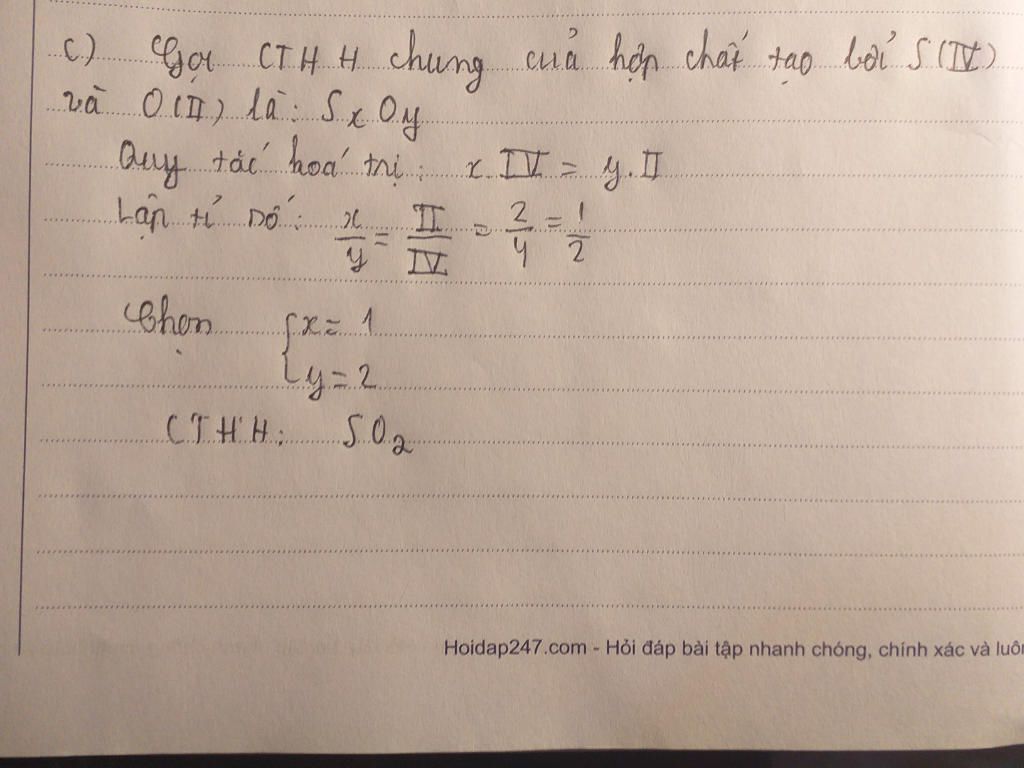 c) Gọi CTHH chung của hợp chất tạo bởi S(IV)
và O(II) là: SxOy
Quy tắc hoá trị: x.IV = y.II
Lập tỉ số: x/y = II/IV = 2/4 = 1/2
Chọn { x = 1
y = 2
CTHH: SO₂
Hoidap247.com - Hỏi đáp bài tập nhanh chóng, chính xác và luôn